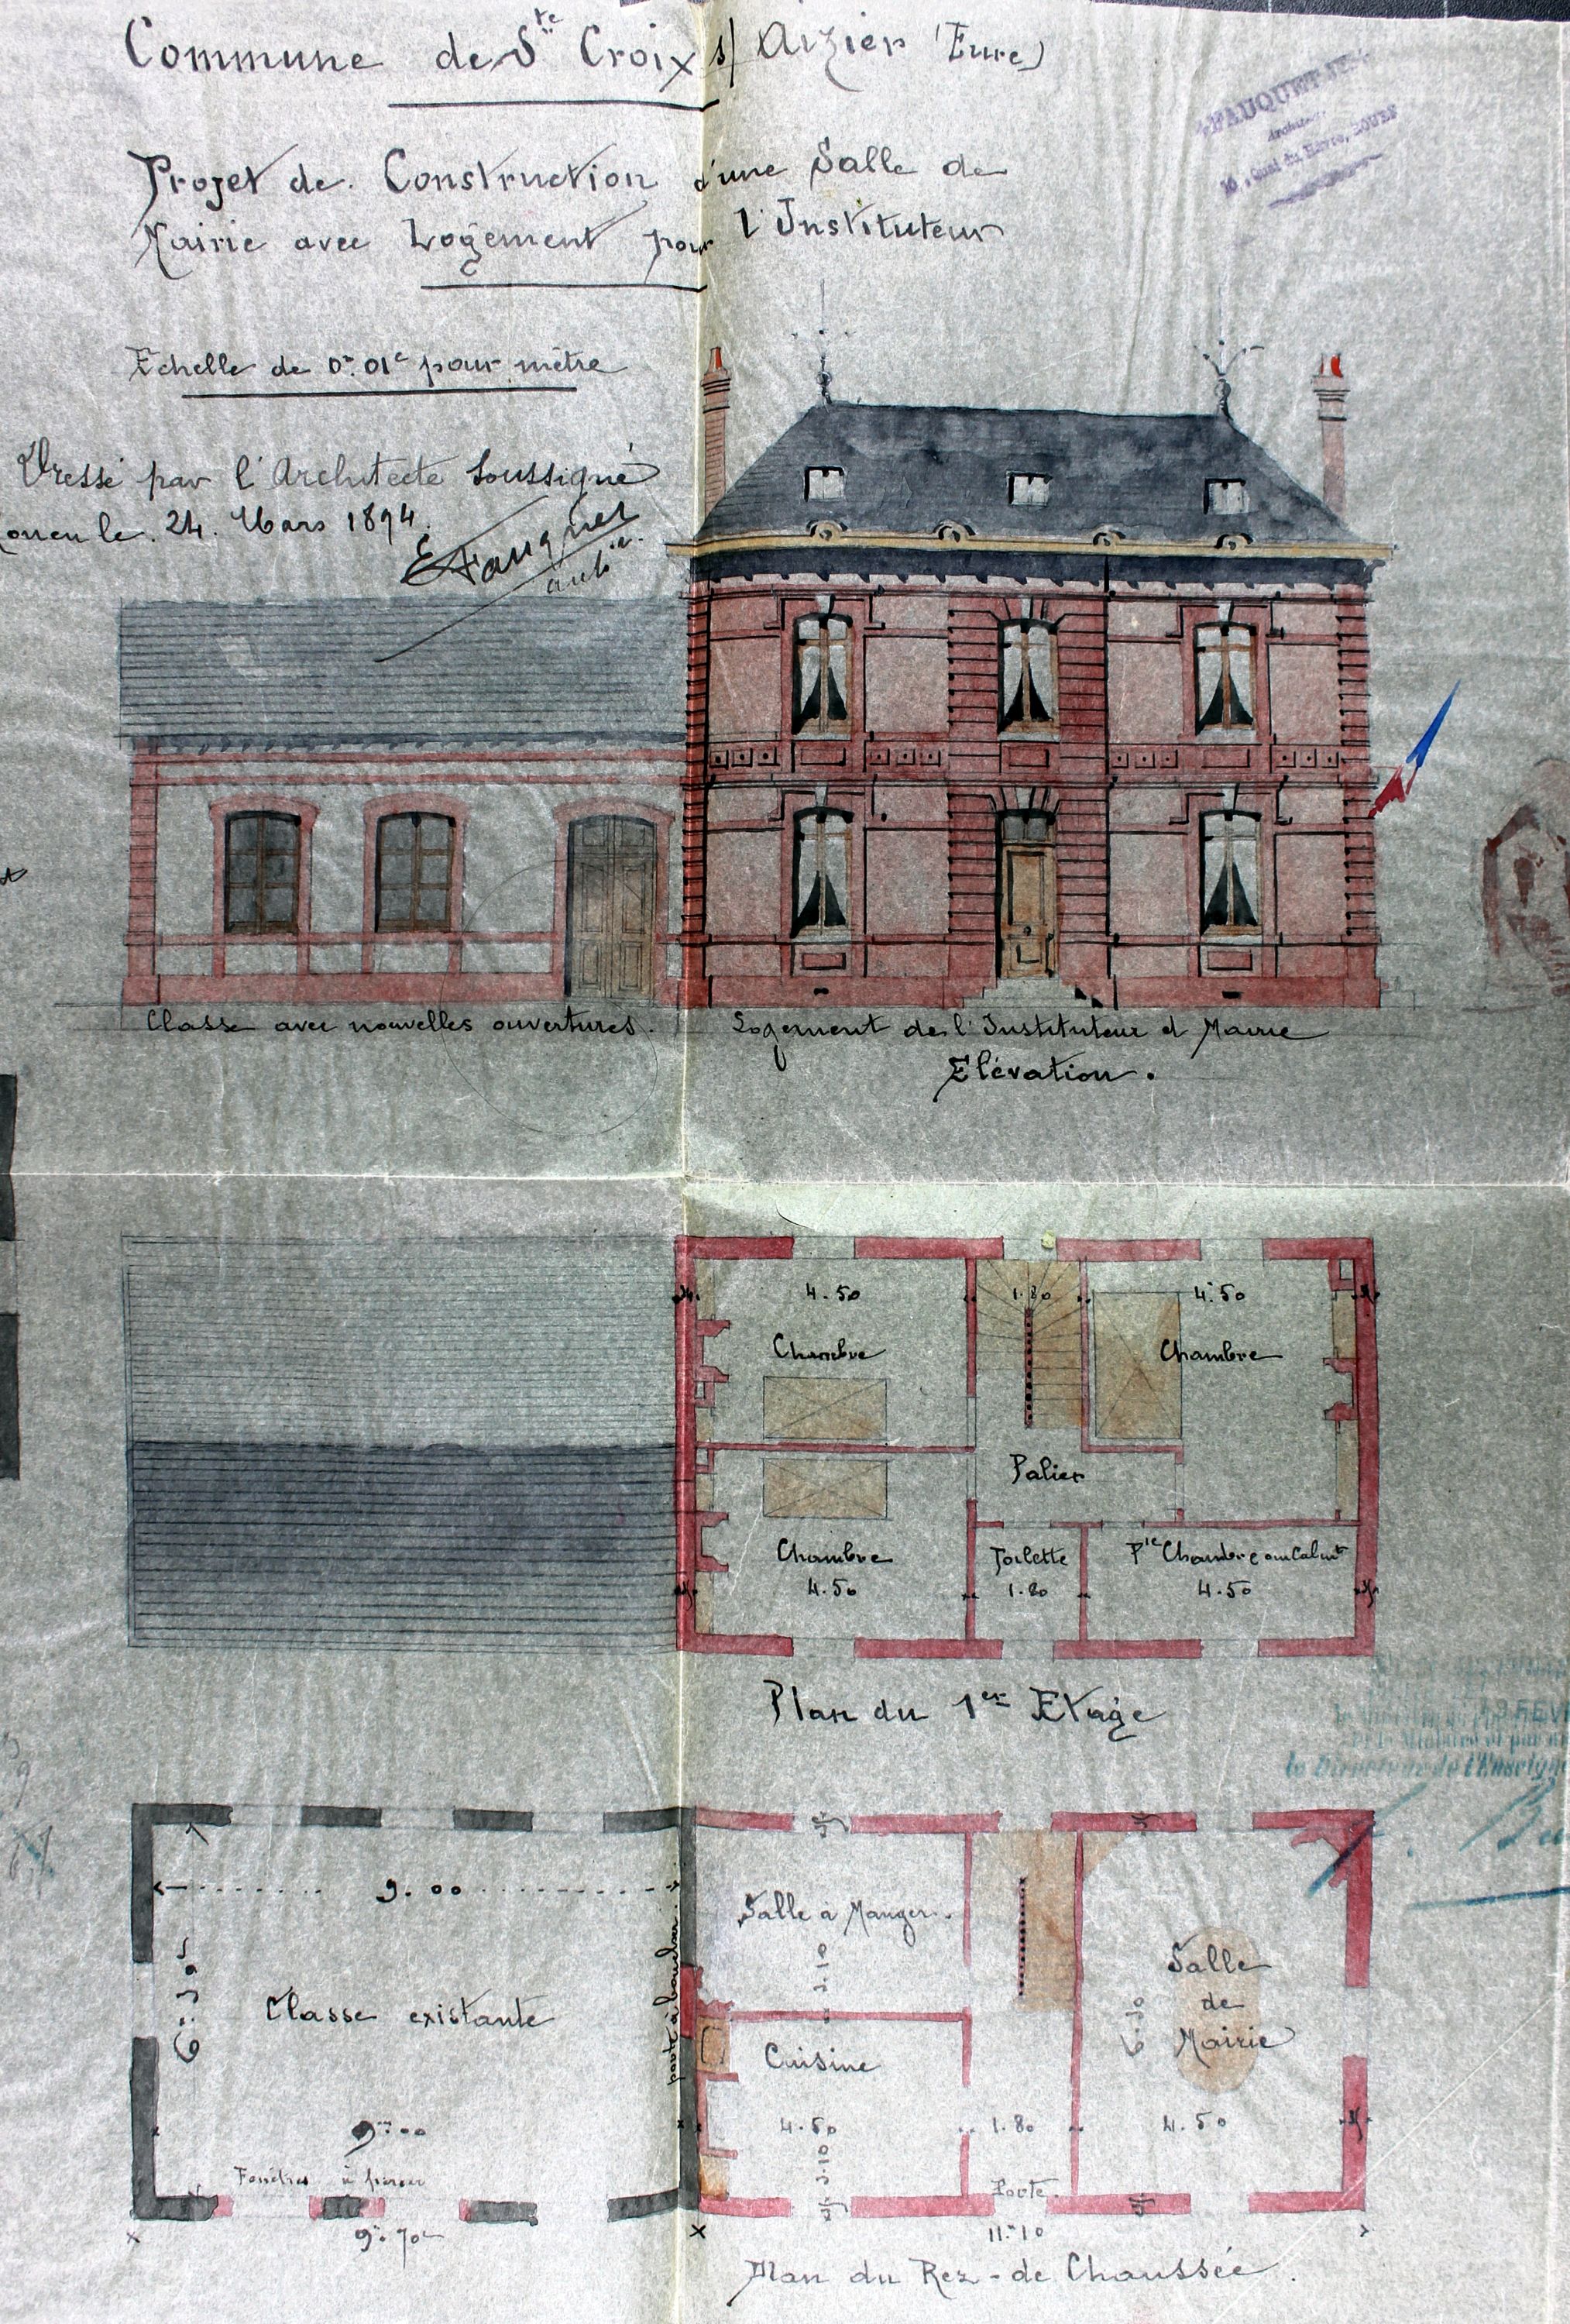 Commune de Ste Croix s/ Aizier (Eure)
Projet de Construction d'une Salle de
Mairie avec Logement pour l'Instituteur
FAUQUET
Architecte
10, Quai du Havre, ROUEN
Echelle de 0m.01c pour mètre
Dressé par l'Architecte Soussigné
Rouen le. 24. Mars 1894.
EFauquet
archte.
Classe avec nouvelles ouvertures.
Logement de l'Instituteur et Mairie
Elévation.
4.50
1.80
4.50
Chambre
Chambre
Palier
Chambre
Toilette
Pte Chambre ou Cabinet
4.50
1.80
4.50
Plan du 1er Etage
FEV
le Directeur de l'Enseign
9.00
6.39
Classe existante
porte à boucher
Salle a Manger.
3.10
Cuisine
Salle
de
Mairie
6.30
9m00
4.50
1.80
4.50
3.10
Fenêtres à percer
Porte.
9m.70c
11m10
Plan du Rez-de Chaussée.